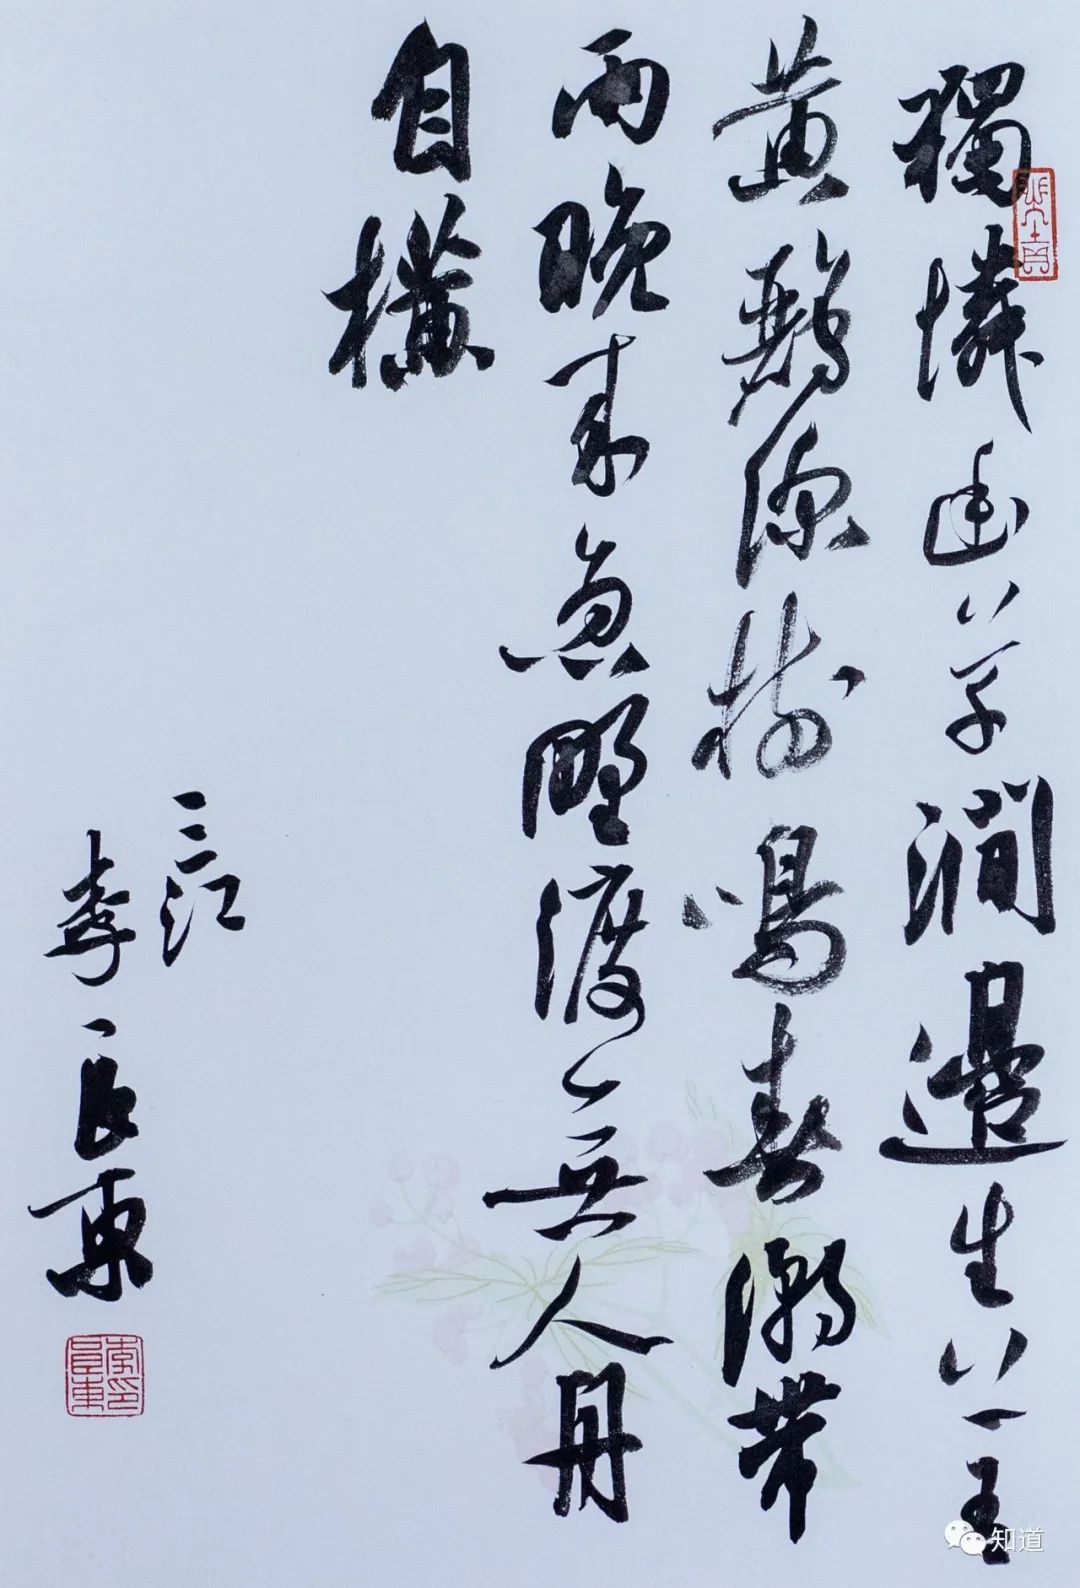 獨憐幽草澗邊生
黃鸝深樹鳴春潮帶
雨晚来急野渡無人舟
自橫
三江
李東
知道